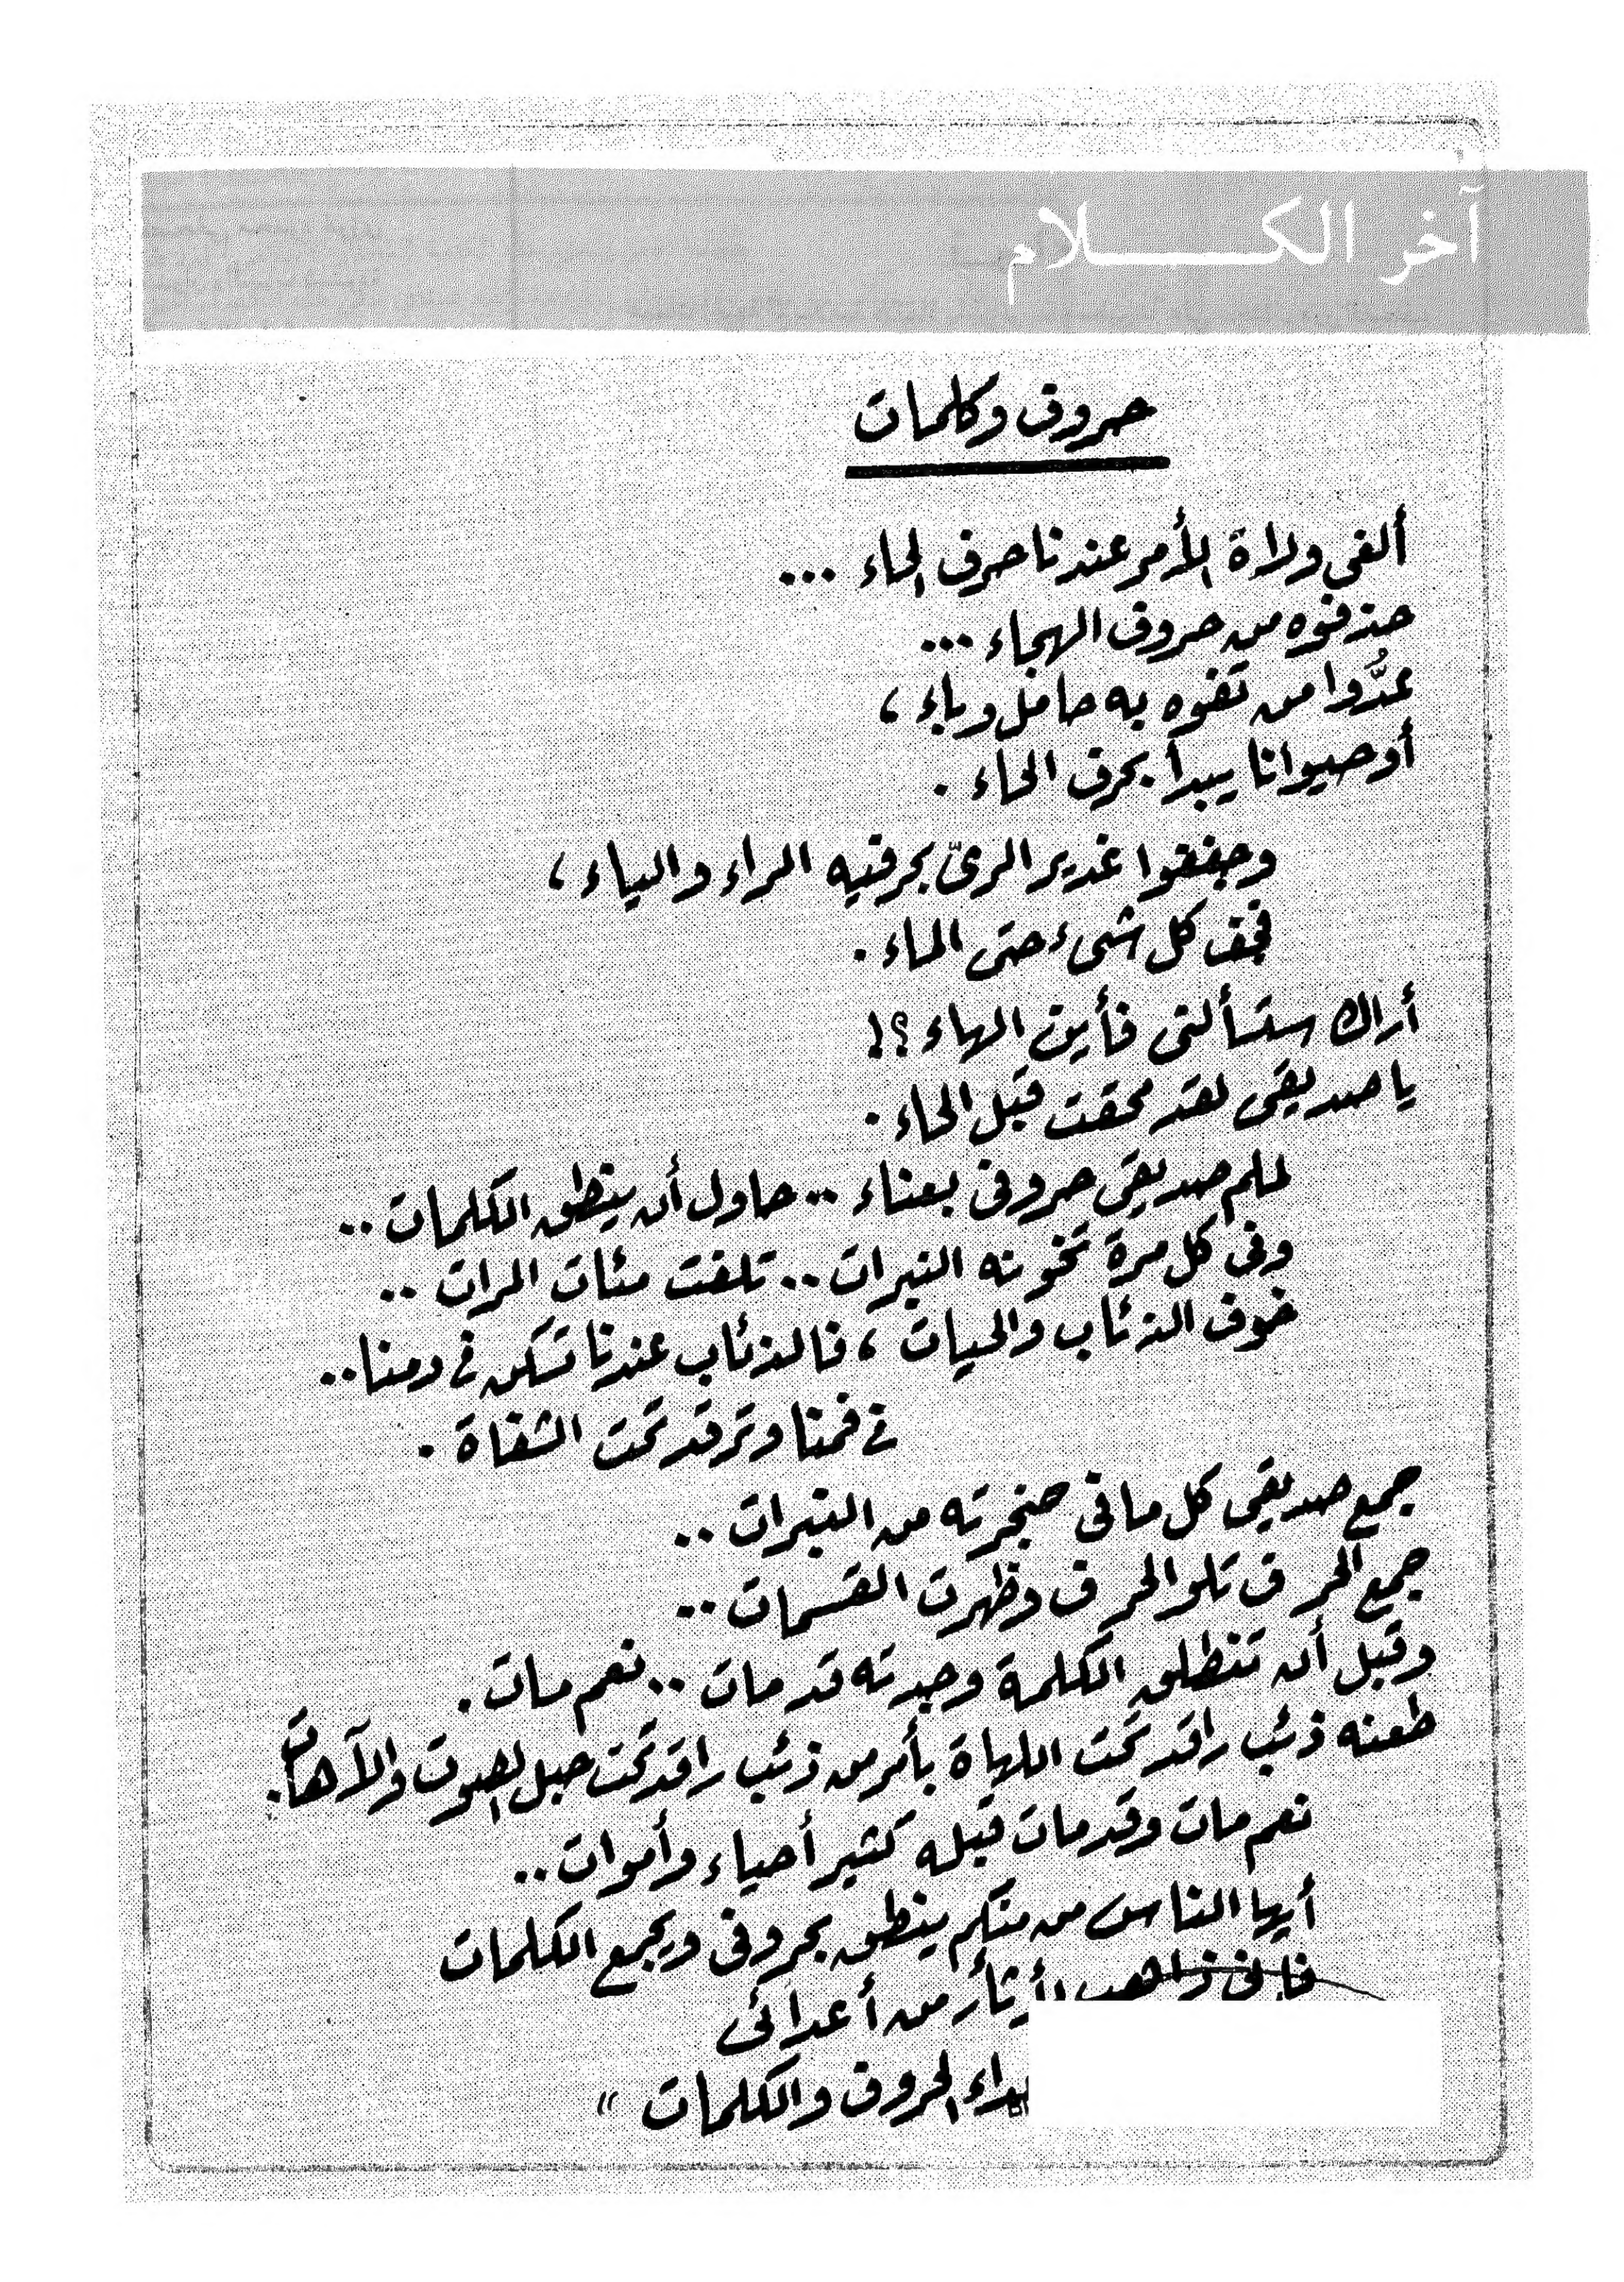 آخر الكلام
حروف وكلمات
ألغى ولاة الأمر عندنا حرف الحاء ...
حذفوه من حروف الهجاء ...
عدُّوا من تفوه به حامل وباء ،
أو حيوانا يبدأ بحرف الحاء .
وجففوا غدير الرىّ بحرفيه الراء والياء ،
فجف كل شىء حتى الماء .
أراك ستسألنى فأين الهاء ؟!
يا صديقى لقد محقت قبل الحاء .
لملم صديقى حروفى بعناء .. حاول أن ينطق الكلمات ..
وفى كل مرة تخونه النبرات .. تلفت مئات المرات ..
خوف الذئاب والحيات ، فالذئاب عندنا تسكن فى دمنا ..
فى فمنا وترقد تحت الشفاة .
جمع صديقى كل ما فى حنجرته من النبرات ..
جمع الحرف تلو الحرف وظهرت القسمات ..
وقبل أن تنطلق الكلمة وجدته قد مات .. نعم مات .
طعنه ذئب راقد تحت اللهاة بأمر من ذئب راقد تحت حبل الصوت والآهات .
نعم مات وقد مات قبله كثير أحياء وأموات ..
أيها الناس من منكم ينطق بحروفى ويجمع الكلمات
فإنى ذاهب لأثأر من أعدائى
الحروف والكلمات "